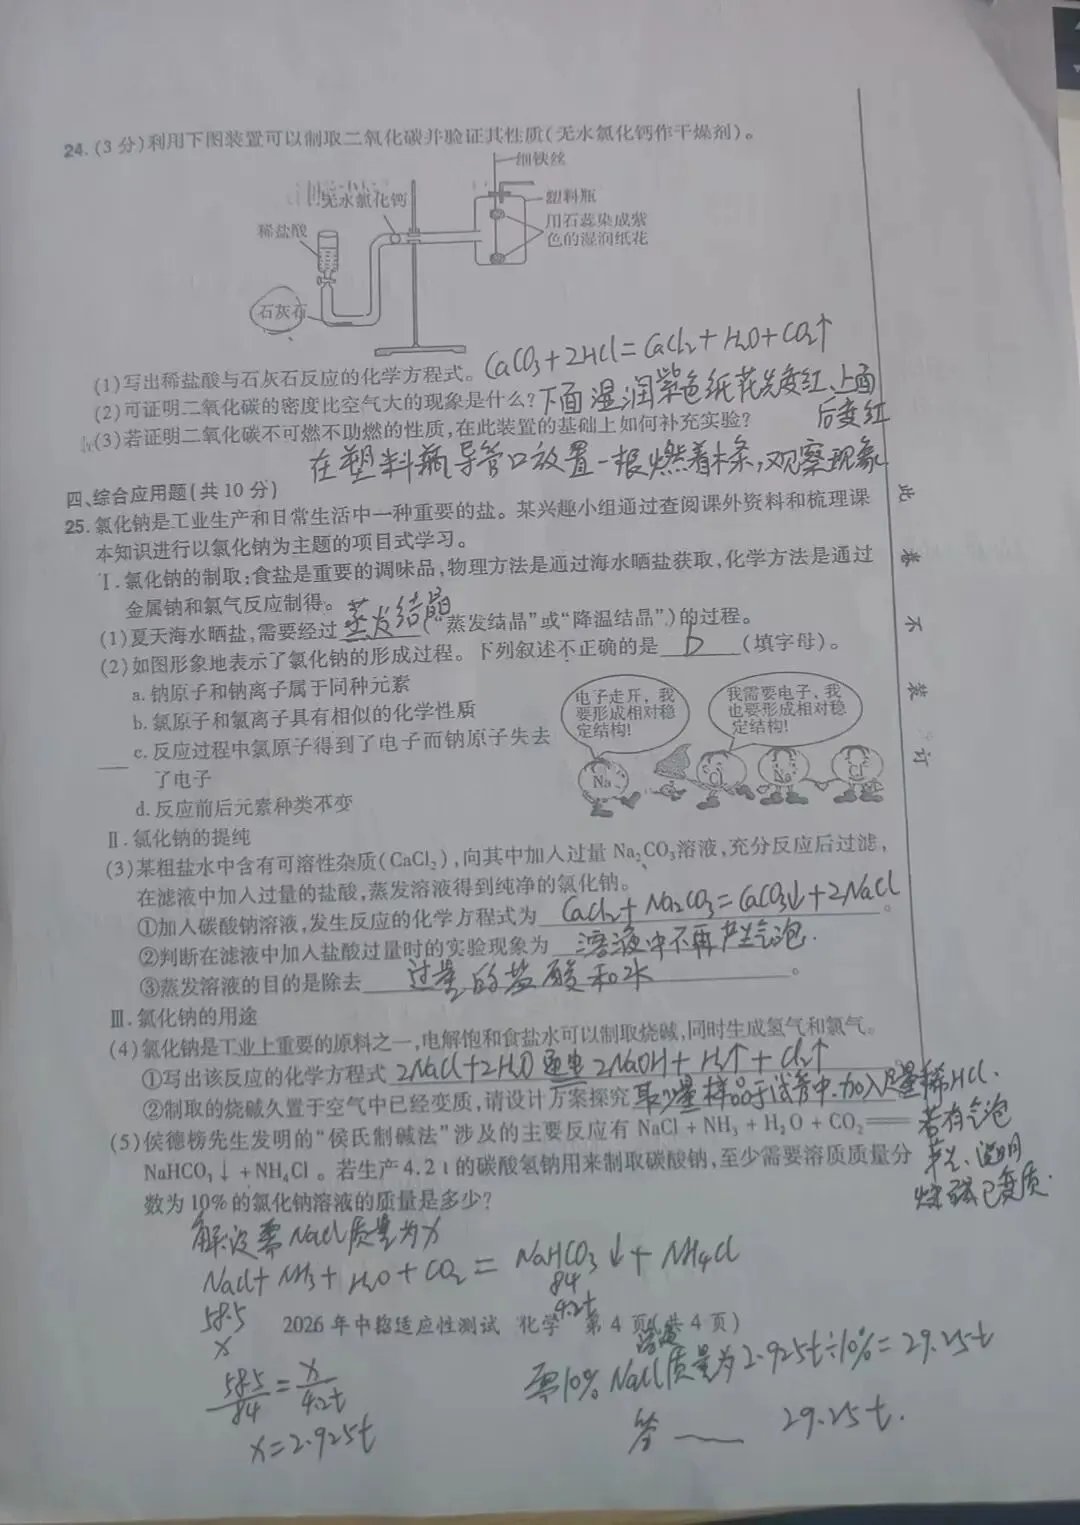 24. (3 分)利用下图装置可以制取二氧化碳并验证其性质(无水氯化钙作干燥剂)。
细铁丝
无水氯化钙
塑料瓶
稀盐酸
用石蕊染成紫
色的湿润纸花
石灰石
(1)写出稀盐酸与石灰石反应的化学方程式。CaCO3+2HCl=CaCl2+H2O+CO2↑
(2)可证明二氧化碳的密度比空气大的现象是什么?下面湿润紫色纸花先变红、上面
后变红
(3)若证明二氧化碳不可燃不助燃的性质,在此装置的基础上如何补充实验?
在塑料瓶导管口放置一根燃着木条,观察现象
四、综合应用题(共 10 分)
25. 氯化钠是工业生产和日常生活中一种重要的盐。某兴趣小组通过查阅课外资料和梳理课
本知识进行以氯化钠为主题的项目式学习。
Ⅰ. 氯化钠的制取:食盐是重要的调味品,物理方法是通过海水晒盐获取,化学方法是通过
金属钠和氯气反应制得。
(1)夏天海水晒盐,需要经过 蒸发结晶 ("蒸发结晶"或"降温结晶")的过程。
(2)如图形象地表示了氯化钠的形成过程。下列叙述不正确的是 b (填字母)。
a. 钠原子和钠离子属于同种元素
b. 氯原子和氯离子具有相似的化学性质
c. 反应过程中氯原子得到了电子而钠原子失去
了电子
d. 反应前后元素种类不变
电子走开,我
要形成相对稳
定结构!
我需要电子,我
也要形成相对稳
定结构!
Na Cl Na Cl
Ⅱ. 氯化钠的提纯
(3)某粗盐水中含有可溶性杂质(CaCl2),向其中加入过量 Na2CO3溶液,充分反应后过滤,
在滤液中加入过量的盐酸,蒸发溶液得到纯净的氯化钠。
①加入碳酸钠溶液,发生反应的化学方程式为 CaCl2+Na2CO3=CaCO3↓+2NaCl 。
②判断在滤液中加入盐酸过量时的实验现象为 溶液中不再产生气泡.
③蒸发溶液的目的是除去 过量的盐酸和水 。
Ⅲ. 氯化钠的用途
(4)氯化钠是工业上重要的原料之一,电解饱和食盐水可以制取烧碱,同时生成氢气和氯气。
①写出该反应的化学方程式 2NaCl+2H2O 通电 2NaOH+H2↑+Cl2↑
②制取的烧碱久置于空气中已经变质,请设计方案探究 取少量样品于试管中.加入足量稀HCl.
若有气泡
产生、说明
烧碱已变质.
(5)侯德榜先生发明的"侯氏制碱法"涉及的主要反应有 NaCl + NH3 + H2O + CO2 ══
NaHCO3↓ + NH4Cl 。若生产 4.2 t 的碳酸氢钠用来制取碳酸钠,至少需要溶质质量分
数为 10% 的氯化钠溶液的质量是多少?
解:设需NaCl质量为x
NaCl+NH3+H2O+CO2=NaHCO3↓+NH4Cl
58.5 84
x 4.2t
2026 年中招适应性测试 化学 第 4 页(共 4 页)
58.5/84=x/4.2t
x=2.925t
溶液
需10% NaCl质量为2.925t÷10%=29.25t
答 —— 29.25t.
此
卷
不
装
订